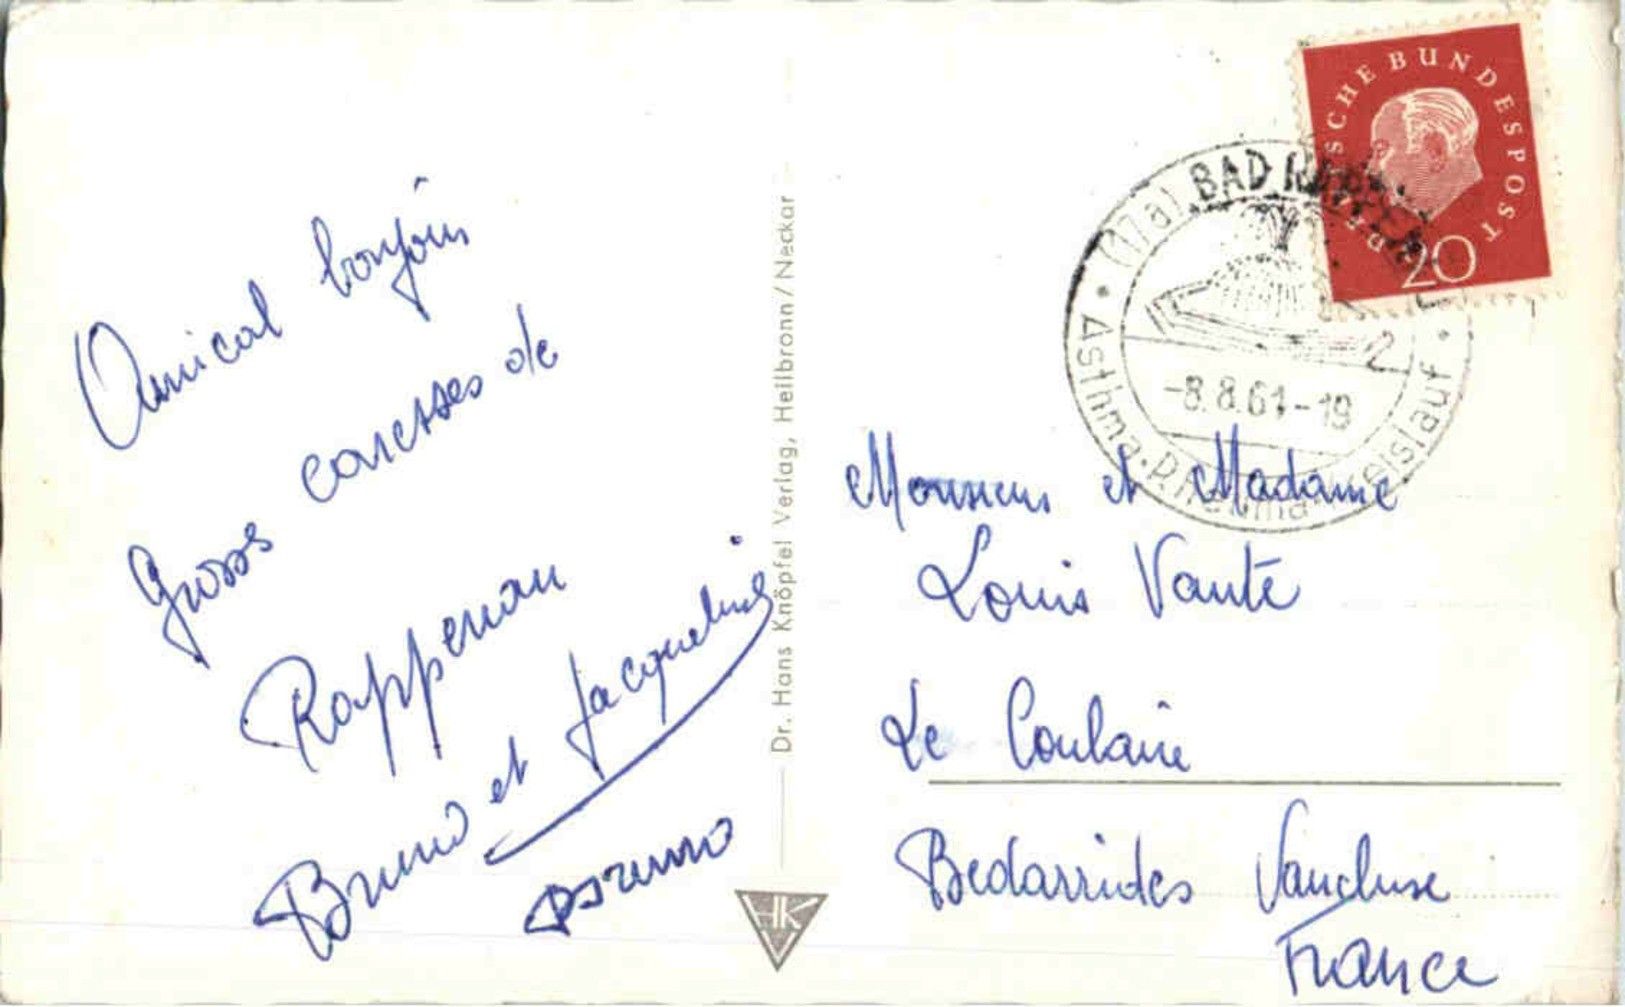 Amical bonjour
Grosses caresses de
Rappenau
Bruno et Jacqueline
Bruno
Dr. Hans Knöpfel Verlag, Heilbronn/Neckar
HK
DEUTSCHE BUNDESPOST
20
(17a) BAD RAPPENAU
2
-8.8.61-19
Asthma · Rheuma Kreislauf
Monsieur et Madame
Louis Vauté
Le Coulaire
Bedarrides Vaucluse
France